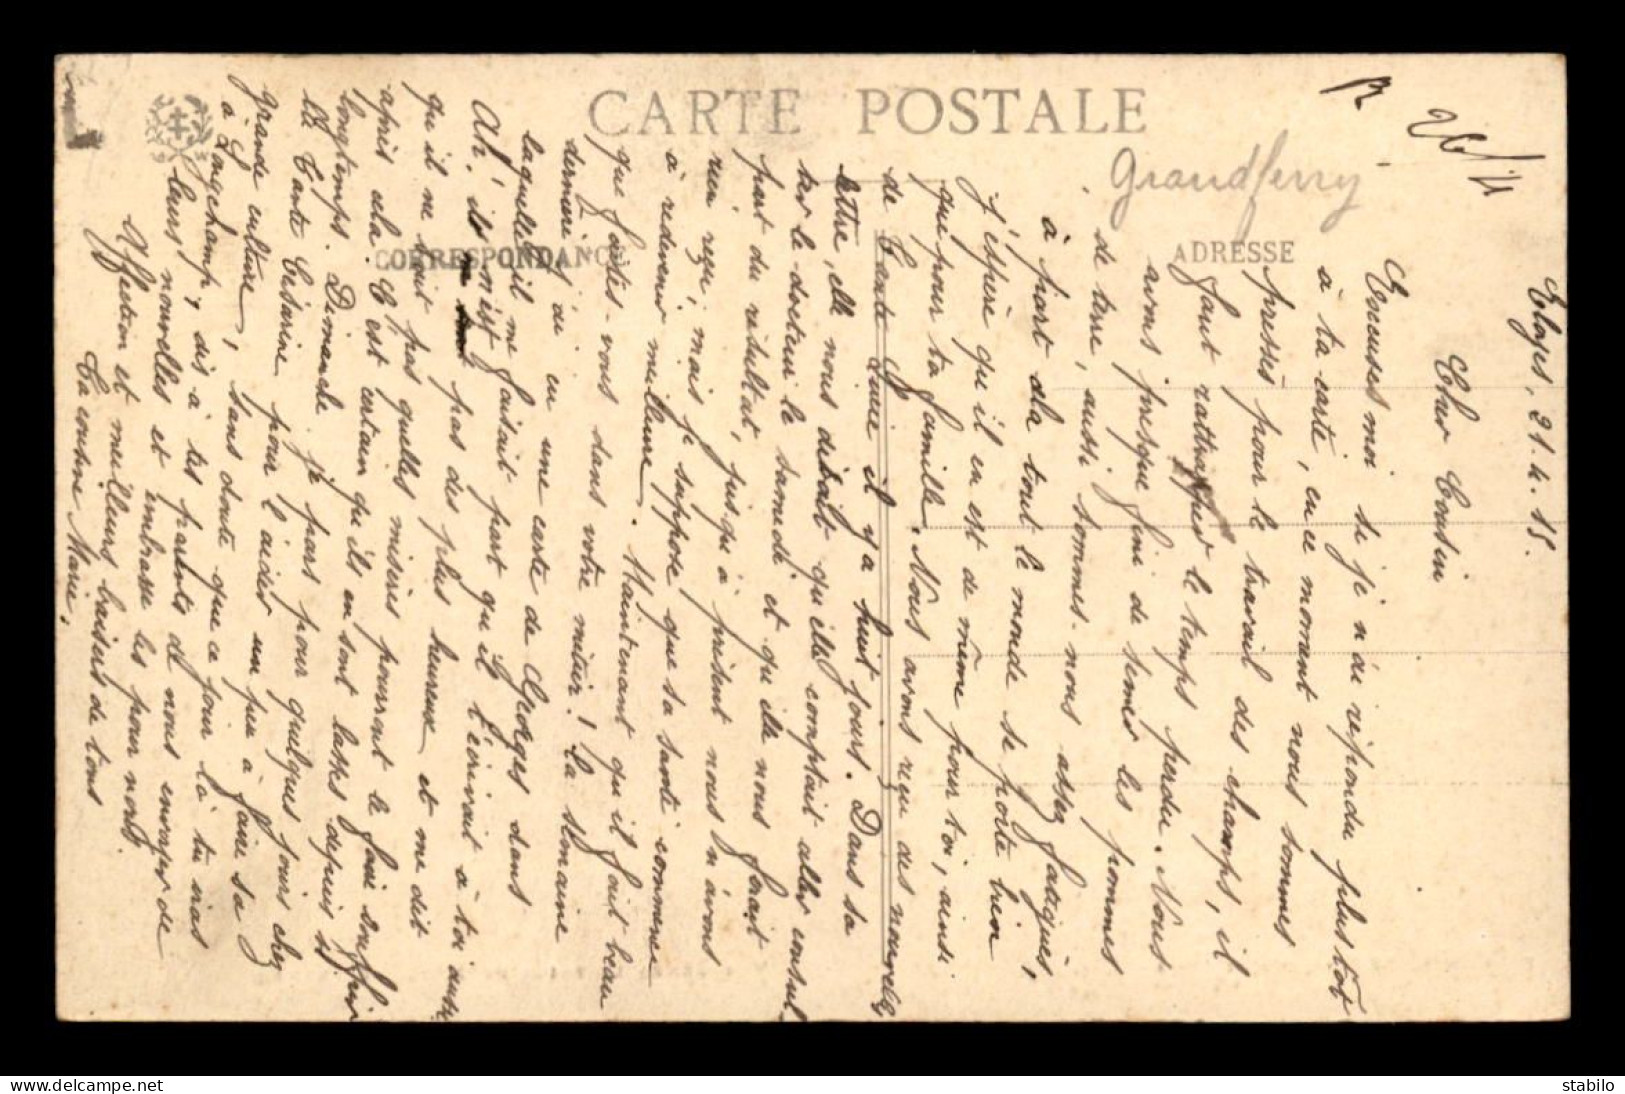 CARTE POSTALE
CORRESPONDANCE
ADRESSE
Grandferry
R 26/4
Etoges, 21.4.15.
Cher Cousin
Excuses moi si je n'ai répondu plus tôt
à ta carte, en ce moment nous sommes
pressés pour le travail des champs, il
faut rattraper le temps perdu. Nous
avons presque fini de semer les pommes
de terre, aussi sommes-nous assez fatigués,
à part cela tout le monde se porte bien
j'espère qu'il en est de même pour toi, ainsi
que pour ta famille. Nous avons reçu des nouvelles
de Tante il y a huit jours. Dans sa
lettre, elle nous disait qu'elle comptait aller consul
ter le docteur le samedi et qu'elle nous ferait
part du résultat, jusqu'à présent nous n'avons
rien reçu, mais je suppose que sa santé commence
à redevenir meilleure. Maintenant qu'il fait beau
que faites-vous dans votre métier! La semaine
dernière j'ai eu une carte de Georges dans
laquelle il me faisait part qu'il t'écrivait à toi aussi
Ah! il n'est pas des plus heureux et me dit
qu'il ne sait pas quelles misères pourront le faire souffrir
après cela. C'est certain qu'ils en sont lassés depuis si
longtemps. Dimanche je pars pour quelques jours chez
la Tante Césarine pour l'aider un peu à faire sa
grande culture, sans doute que ce jour là tu iras
à Longchamp, dis à tes parents de nous envoyer de
leurs nouvelles et embrasse les pour nous.
Affection et meilleurs baisers de tous
Ta cousine Marie.
stabilo